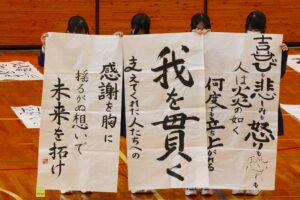 喜び悲しみ怒り
人は炎の如く
何度も立ち上がれる
我を貫く
支えてくれた人たちへの
感謝を胸に
揺るがぬ想いで
未来を拓け